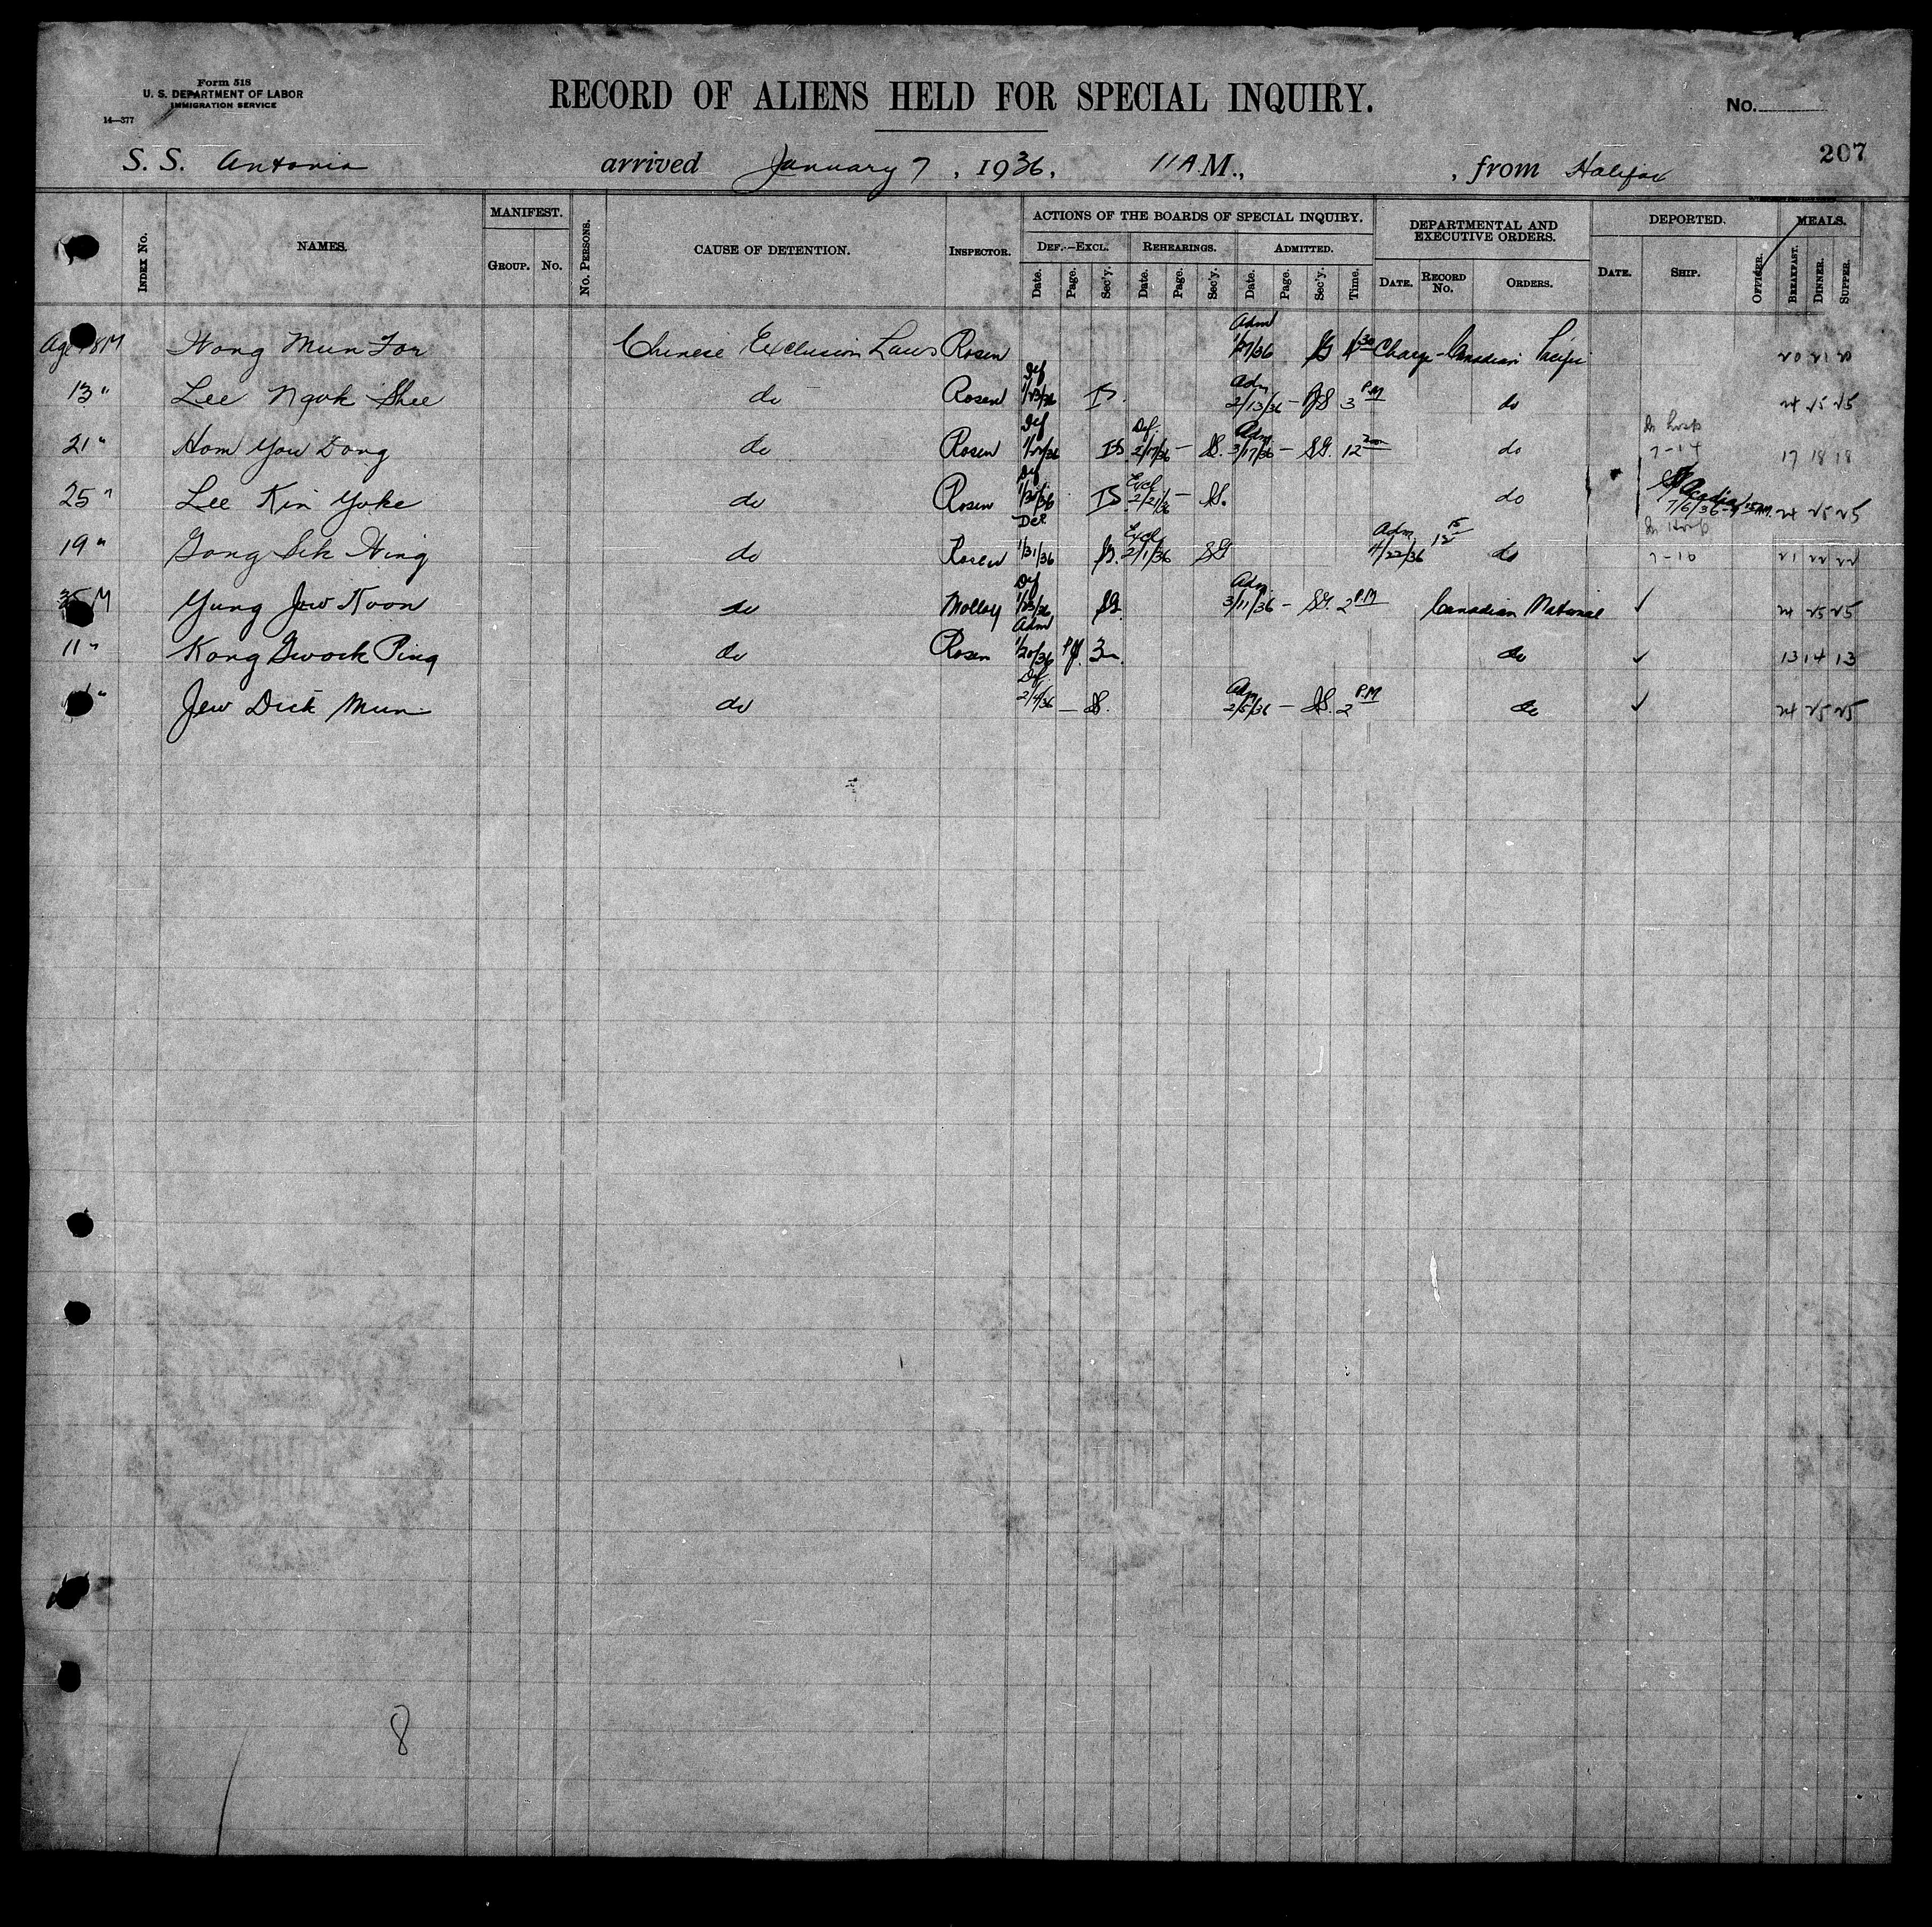 Form 518
U. S. DEPARTMENT OF LABOR
IMMIGRATION SERVICE
14—377
RECORD OF ALIENS HELD FOR SPECIAL INQUIRY.
No.
207
S. S. Antonia arrived January 7, 1936, 11 A.M., , from Halifax
INDEX No. NAMES. MANIFEST. GROUP. No. No. PERSONS. CAUSE OF DETENTION. INSPECTOR. ACTIONS OF THE BOARDS OF SPECIAL INQUIRY. DEF.—EXCL. Date. Page. Sec'y. REHEARINGS. Date. Page. Sec'y. ADMITTED. Date. Page. Sec'y. Time. DEPARTMENTAL AND EXECUTIVE ORDERS. DATE. RECORD No. ORDERS. DEPORTED. DATE. SHIP. OFFICER. MEALS. BREAKFAST. DINNER. SUPPER.
Age 8 M Wong Mun For Chinese Exclusion Laws Rosen Adm Charge - Canadian Pacific
13 " Lee Ngok Shee do Rosen Def 1/23/36 IS. Adm 2/13/36 — 3 PM do 24 25 25
21 " Hom You Dong do Rosen Def IS Def. 2/17/36 — S. Adm 3/17/36 — SG. 12 noon do In hosp 7-14 17 18 18
25 " Lee Kin Yoke do Rosen Def IS Excl 2/21/36 — S. do Acadia 7/6/36 24 25 25
19 " Gong Sik Hing do Rosen Def. 1/31/36 S. Excl 2/1/36 SG Adm 4/22/36 do In Hosp 7-10 21 22 22
35 M Yung Jow Koon do Molloy Def 1/23/36 SG Adm 3/11/36 — SG. 2 PM Canadian National ✓ 24 25 25
11 " Kong Gwock Ping do Rosen Adm 1/20/36 do ✓ 13 14 13
" Jew Dick Mun do Def 2/4/36 — S. Adm 2/5/36 — S. 2 PM do ✓ 24 25 25
8